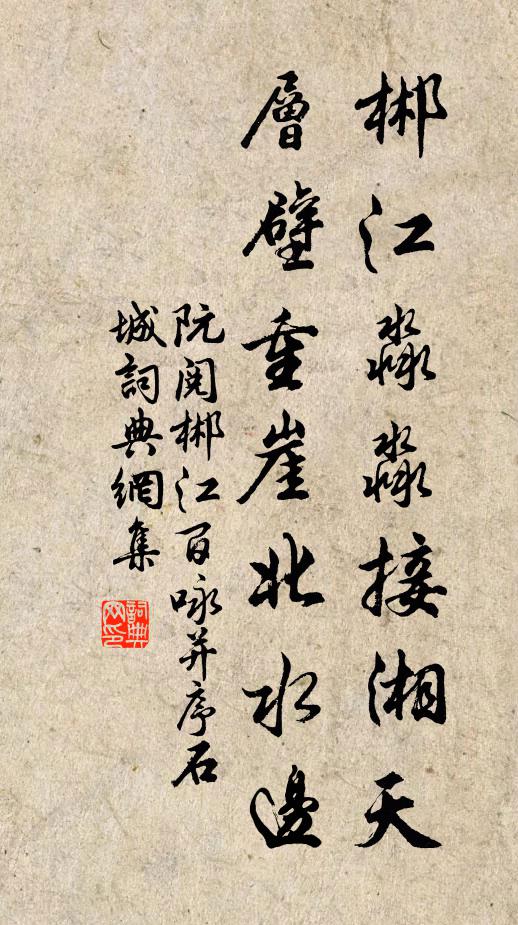 郴江淼淼接湘天
層壁重崖北水邊
阮閱郴江百咏并序石
城詞典網集
詞典
网印